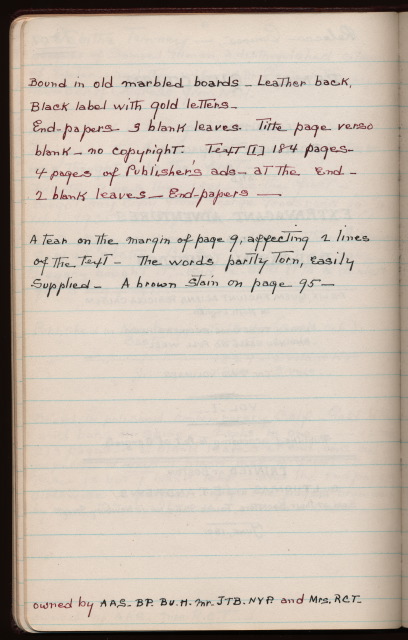 Bound in old marbled boards - Leather back,
Black label with gold letters -
End-papers 3 blank leaves. Title page verso
blank - no copyright. Text [1] 184 pages -
4 pages of Publisher's ads - at the End -
2 blank leaves - End-papers -
A Tear on the margin of page 9, affecting 2 lines
of the Text - The words partly Torn, Easily
Supplied - A brown Stain on page 95 -
owned by AAS. BP. BU.H. Mr. JTB. NYP. and Mrs. RCT.